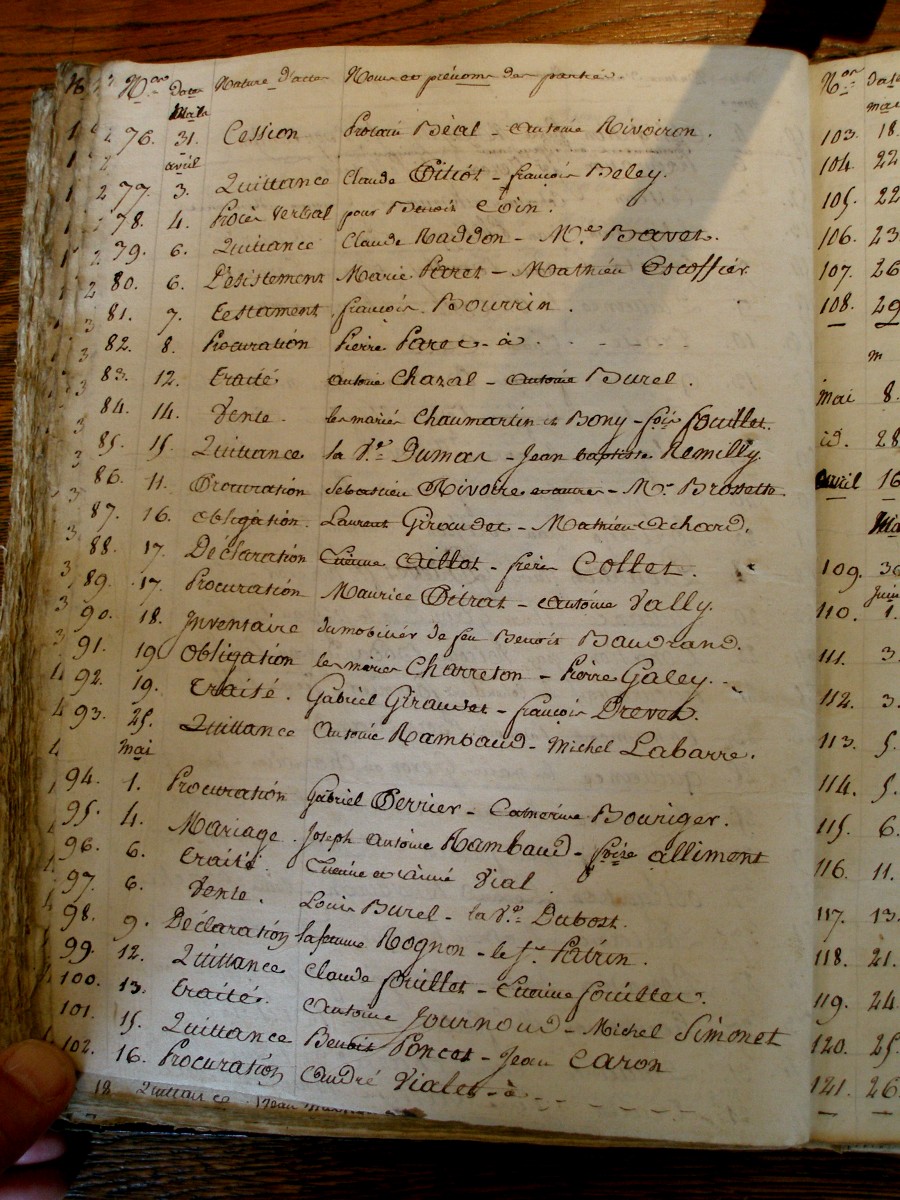 N.os Date Nature d'actes Noms et prénoms des parties.
Mars
76. 31. Cession Béal - antoine Rivoiron.
avril
77. 3. Quittance Claude Pitiot - françois Beley.
78. 4. Procès verbal pour Benoit Coin.
79. 6. Quittance Claude Raddon - M.e Bavet.
80. 6. Désistement Marie Paret - Mathieu Escoffier
81. 7. Testament françois Bourrin.
82. 8. Procuration Pierre Paret - à
83. 12. Traité antoine Chazal - antoine Burel.
84. 14. Vente. les mariés Chaumartin et Bony - fois fouillet.
85. 15. Quittance la V.e Dumas - Jean baptiste Remilly
86. 11. Procuration Sébastien Rivoire et autres - M.e Brossette
87. 16. obligation. Laurent Giraudet - Mathieu achard.
88. 17. Déclaration Etienne Aillot - frères Collet.
89. 17. Procuration Maurice Pitrat - antoine Vally.
90. 18. Inventaire du mobilier de feu Benoit Baudrand.
91. 19. Obligation les mariés Charreton - Pierre Galey.
92. 19. Traité. Gabriel Giraudet - françois Drevet.
93. 25. Quittance Antoine Rambaud - Michel Labarre.
mai
94. 1. Procuration Gabriel Perrier - Catherine Bouriger.
95. 4. Mariage. Joseph Antoine Rambaud - allimont
96. 6. Traité Etienne et aimé Vial.
97. 6. Vente. Louis Burel - la V.e Dubost.
98. 9. Déclaration la femme Rognon - le S.r Patrin.
99. 12. Quittance Claude fouillet - Etienne fouillet.
100. 13. Traité. Antoine Journoud - Michel Simonet
101. 15. Quittance Benoit Poncet - Jean Caron
102. 16. Procuration André Vialet - à
18. Quittance Jean
N.os Date
mai
103. 18.
104. 22
105. 22
106. 23
107. 26
108. 29
m
mai 8.
id. 28
avril 16
Ma
109. 30
Juin
110. 1.
111. 3.
112. 3.
113. 5.
114. 5.
115. 6.
116. 11.
117. 13.
118. 21.
119. 24
120. 25
121. 26